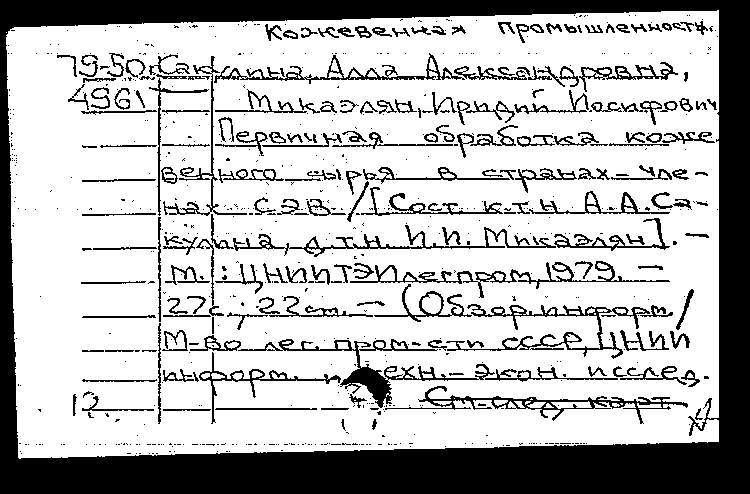 Кожевенная промышленность.
79-50г Сакулина, Алла Александровна,
4961 Микаэлян, Иридий Иосифович
Первичная обработка коже
венного сырья в странах-чле-
нах СЭВ. / [Сост. к.т.н. А.А.Са-
кулина, д.т.н. И.И. Микаэлян]. —
М.: ЦНИИТЭИлегпром, 1979. —
27с.; 22см. — (Обзор. информ. /
М-во лег. пром-сти СССР, ЦНИИ
информ. и техн.-экон. исслед.
12. См. след. карт